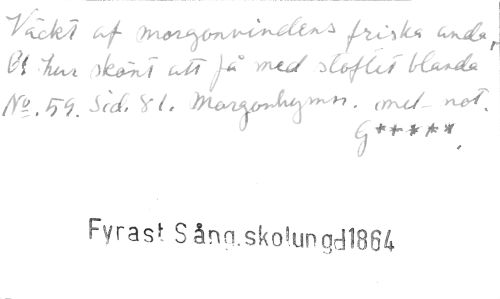 Väckt af morgonvindens friska anda,
O! hur skönt att få med stoftet blanda
No. 59. Sid. 81. Morgonhymn. med not.
G*****.
Fyrast Sång.skolungd1864